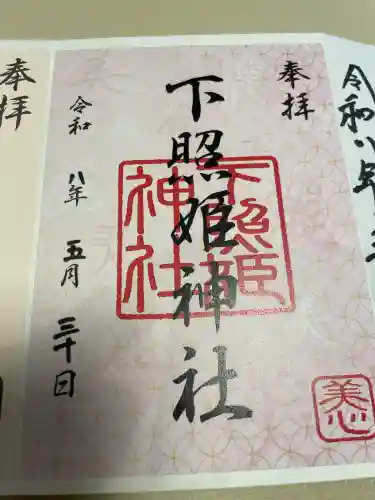 令和八年五
奉拝
下照姫神社
下照姫
神社
令和八年五月三十日
奉拝